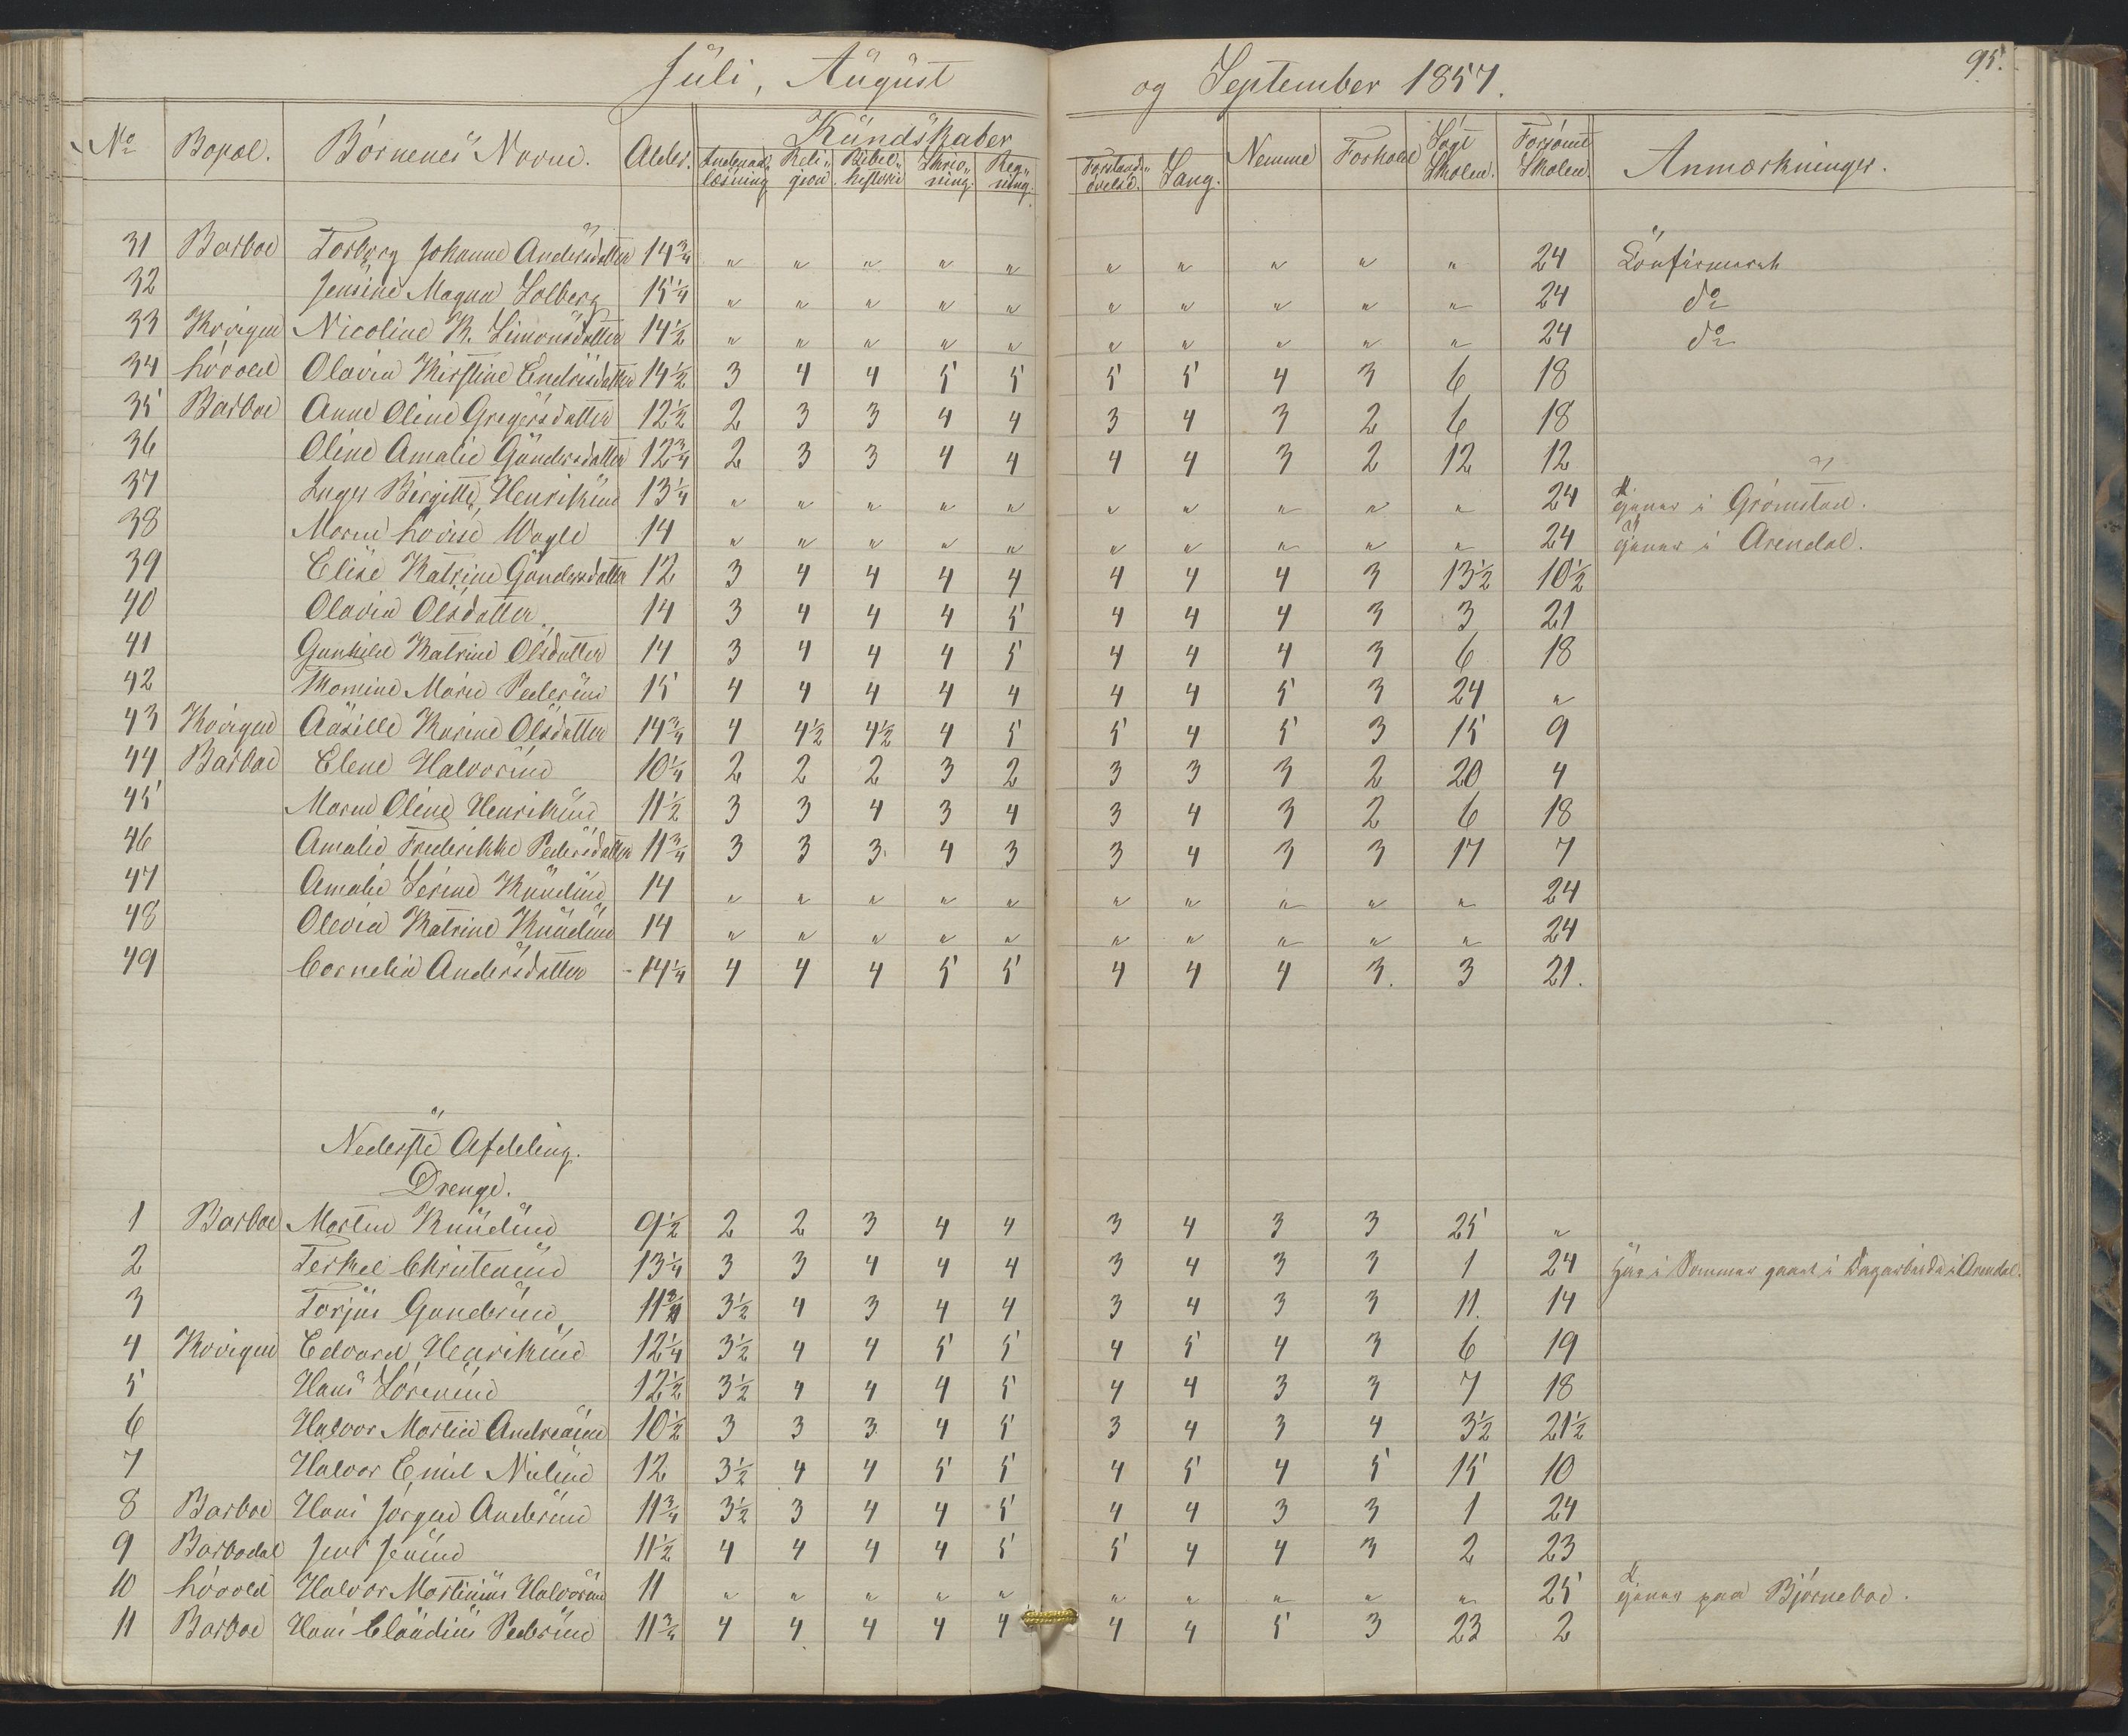 Juli, August og September 1857. 95.
No Bopæl. Börnenes Navne. Alder. Kundskaber Nemme Forhold Søgt Skolen. Forsömt Skolen. Anmærkninger.
Indenadlæsning Religion Bibelhistorie Skrivning. Regning. Forstandsövelse. Sang.
31 Barboe Torborg Johanne Andersdatter 14 3/4 " " " " " " " " " " 24 Konfirmeret
32 Jensine Magna Solberg 15 1/4 " " " " " " " " " " 24 do
33 Kvigen Nicoline K. Simonsdatter 14 1/2 " " " " " " " " " " 24 do
34 Lövold Olavia Kirstine Endrisdatter 14 1/2 3 4 4 5 5 5 5 4 3 6 18
35 Barboe Anne Oline Gregersdatter 12 1/2 2 3 3 4 4 3 4 3 2 6 18
36 Oline Amalie Gundersdatter 12 3/4 2 3 3 4 4 4 4 3 2 12 12
37 Inger Birgitte Henriksen 13 1/4 " " " " " " " " " " 24 tjener i Grömstad.
38 Maren Lovise Wagle 14 " " " " " " " " " " 24 tjener i Arendal.
39 Elise Katrine Gundersdatter 12 3 4 4 4 4 4 4 4 3 13 1/2 10 1/2
40 Olavia Olsdatter 14 3 4 4 4 5 4 4 4 3 3 21
41 Gunhild Katrine Olsdatter 14 3 4 4 4 5 4 4 4 3 6 18
42 Thomine Marie Pedersen 15 4 4 4 4 4 4 4 5 3 24 "
43 Kvigen Aasille Karine Olsdatter 14 3/4 4 4 1/2 4 1/2 4 5 5 4 5 3 15 9
44 Barboe Elene Halvorsen 10 1/4 2 2 2 3 2 3 3 3 2 20 4
45 Maren Oline Henriksen 11 1/2 3 3 4 3 4 3 4 3 2 6 18
46 Amalie Frederikke Pedersdatter 11 3/4 3 3 3 4 3 3 4 3 3 17 7
47 Amalie Serine Knudsen 14 " " " " " " " " " " 24
48 Olevia Katrine Knudsen 14 " " " " " " " " " " 24
49 Cornelia Andersdatter 14 1/4 4 4 4 5 5 4 4 4 3. 3 21.
Nederste Afdeling.
Drenge.
1 Barboe Morten Knudsen 9 1/2 2 2 3 4 4 3 4 3 3 25 "
2 Terkel Christensen 13 1/4 3 3 4 4 4 3 4 3 3 1 24 har i Sommer gaaet i Dagarbeide i Arendal.
3 Torjus Gundersen 11 3/4 3 1/2 4 3 4 4 3 4 3 3 11. 14
4 Kvigen Edvard Henriksen 12 1/4 3 1/2 4 4 5 5 4 5 4 3 6 19
5 Hans Sörensen 12 1/2 3 1/2 4 4 4 5 4 4 3 3 7 18
6 Halvor Martin Andreasen 10 1/2 3 3 3 4 5 3 4 3 4 3 1/2 21 1/2
7 Halvor Emil Nielsen 12 3 1/2 4 4 5 5 4 5 4 5 15 10
8 Barboe Hans Jörgen Andersen 11 3/4 3 1/2 3 4 4 5 4 4 3 3 1 24
9 Barbodal Jens Jensen 11 1/2 4 4 4 4 5 5 4 4 3 2 23
10 Lövold Halvor Martinius Halvorsen 11 " " " " " " " " " " 25 tjener paa Björneboe.
11 Barboe Hans Claudius Pedersen 11 3/4 4 4 4 4 4 4 4 5 3 23 2